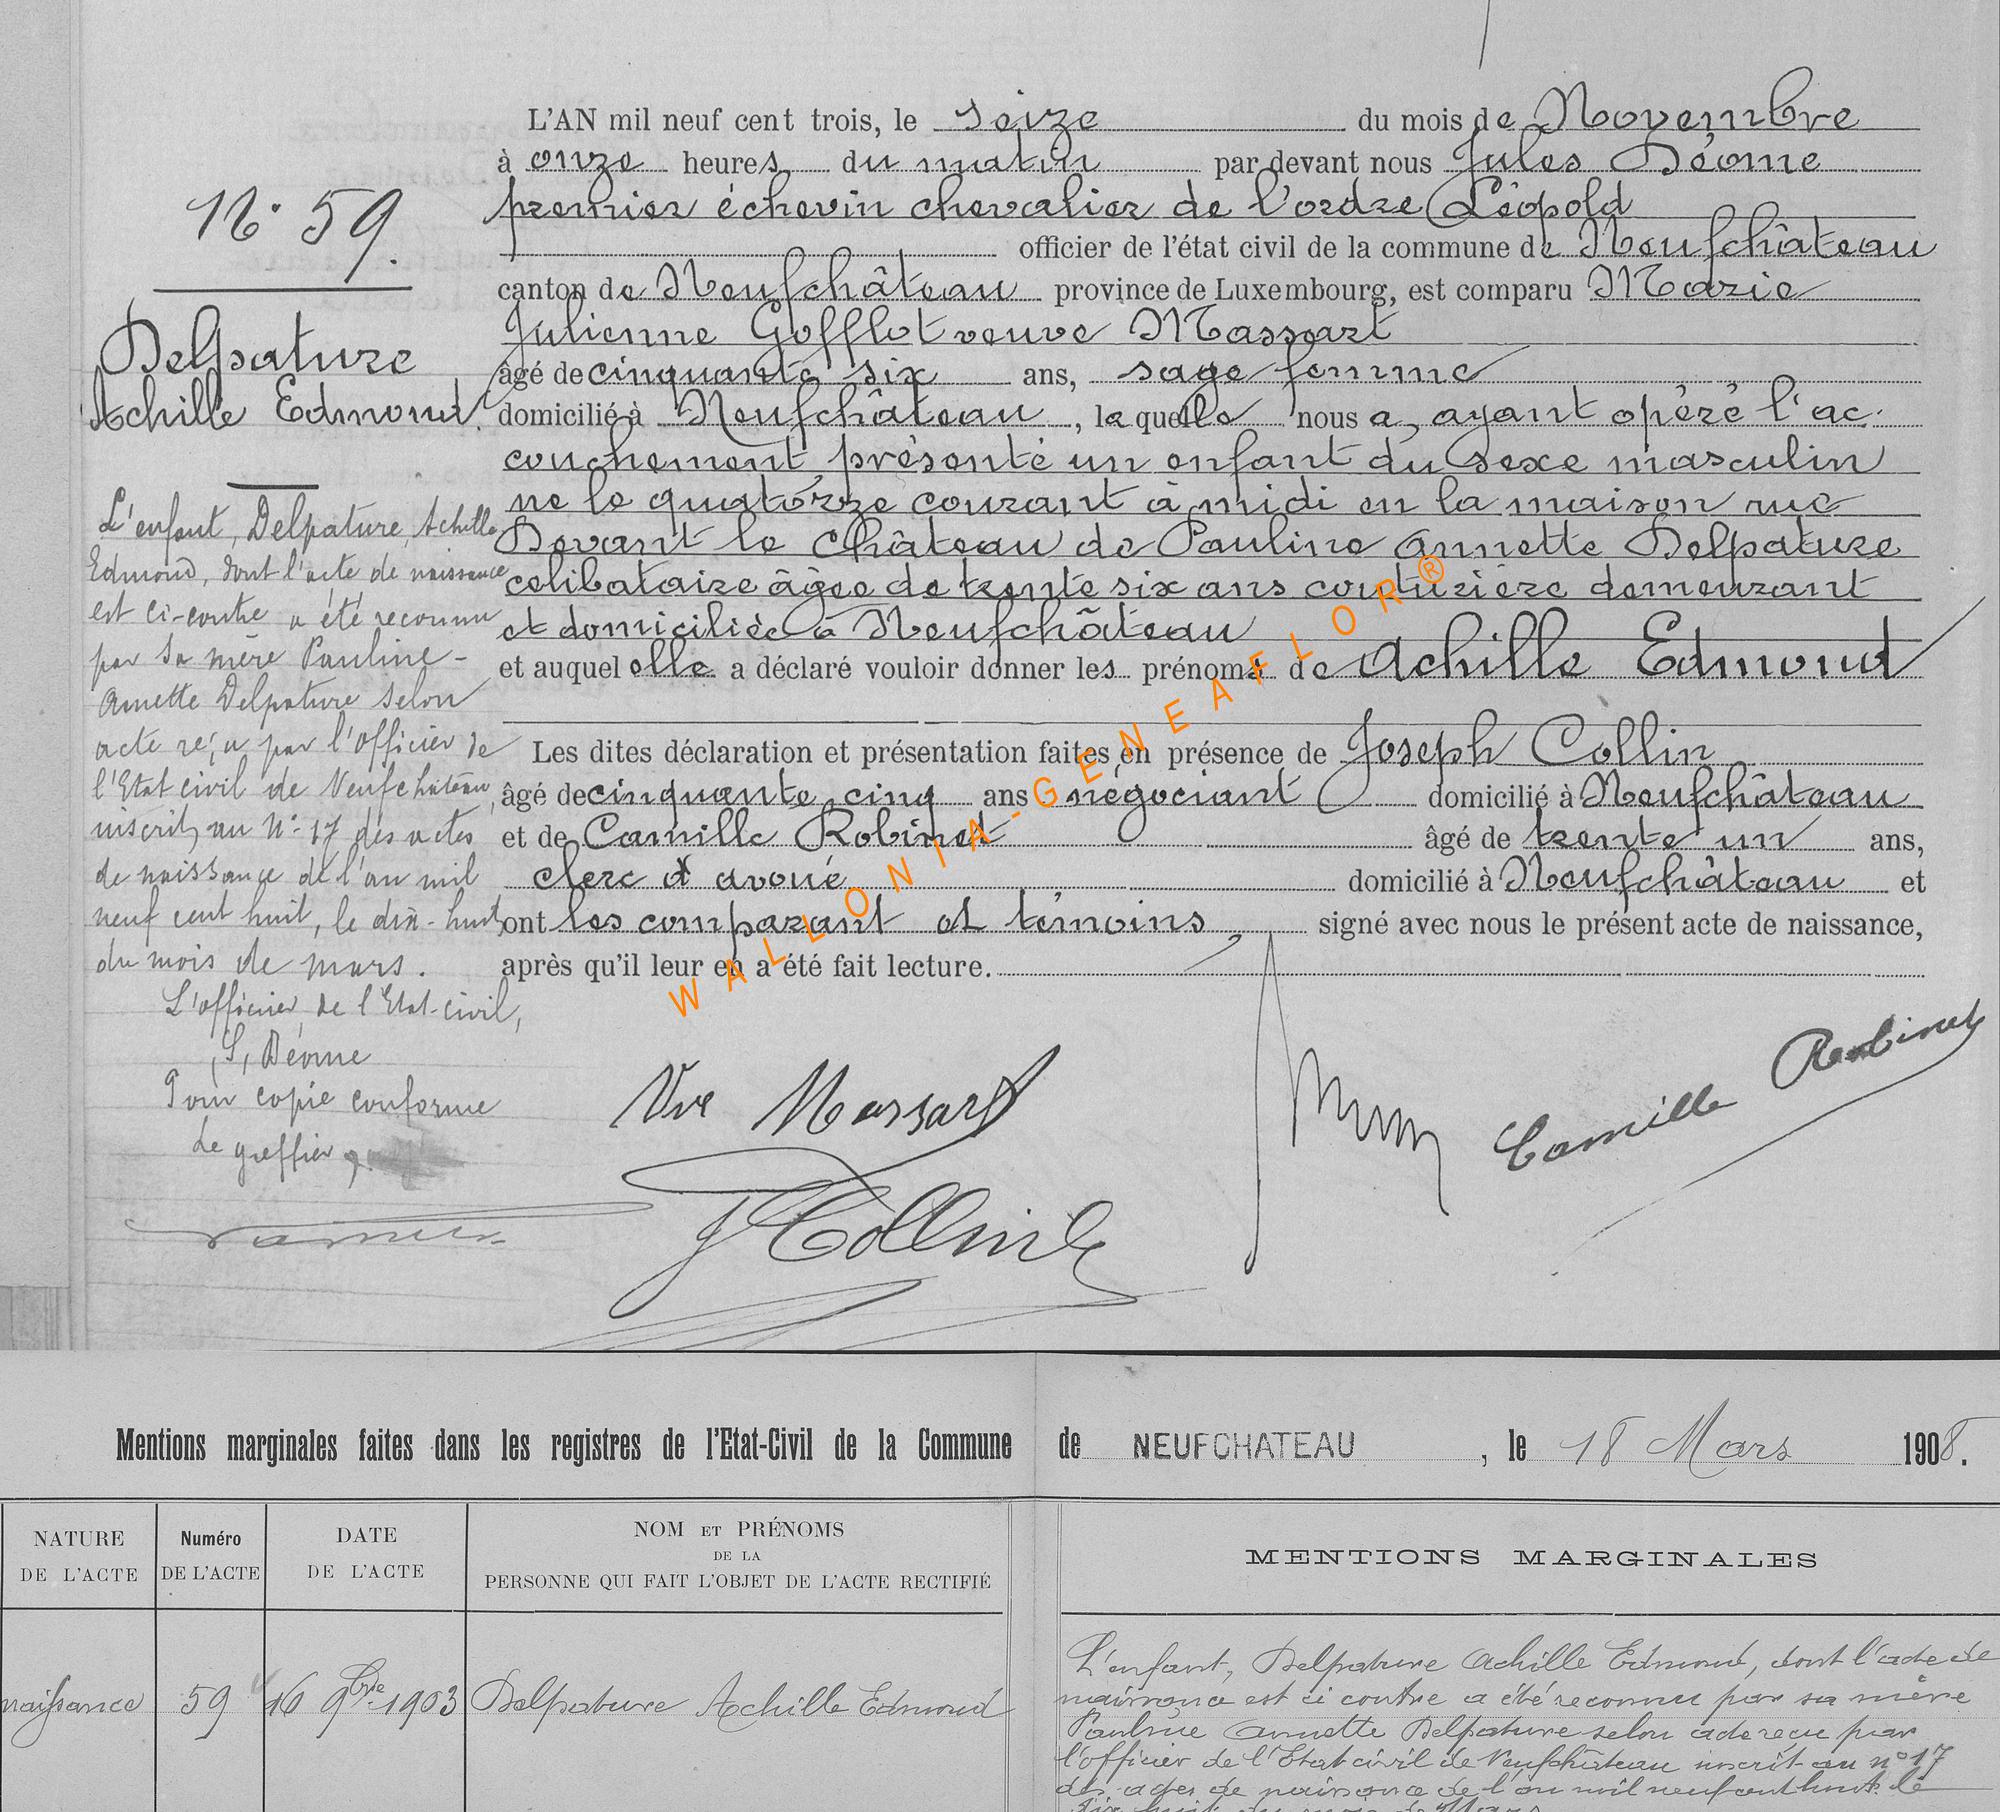 L'AN mil neuf cent trois, le seize du mois de Novembre
à onze heures du matin par devant nous Jules Déome
premier échevin chevalier de l'ordre Léopold
officier de l'état civil de la commune de Neufchâteau
canton de Neufchâteau province de Luxembourg, est comparu Marie
Julienne Gofflot veuve Massart
âgé de cinquante six ans, sage femme
domicilié à Neufchâteau, laquelle nous a, ayant opéré l'ac-
couchement, présenté un enfant du sexe masculin
né le quatorze courant à midi en la maison rue
Devant le Château de Pauline Annette Delpature
célibataire âgée de trente six ans couturière demeurant
et domiciliée à Neufchâteau
et auquel elle a déclaré vouloir donner les prénoms de Achille Edmond
Les dites déclaration et présentation faites en présence de Joseph Collin
âgé de cinquante cinq ans négociant domicilié à Neufchâteau
et de Camille Robinet âgé de trente un ans,
clerc d'avoué domicilié à Neufchâteau et
ont les comparant et témoins signé avec nous le présent acte de naissance,
après qu'il leur en a été fait lecture.
Vve Massart
Camille Robinet
J Collin
N° 59.
Delpature
Achille Edmond.
L'enfant, Delpature, Achille
Edmond, dont l'acte de naissance
est ci-contre a été reconnu
par sa mère Pauline-
Annette Delpature selon
acte reçu par l'Officier de
l'Etat civil de Neufchâteau,
inscrit au N° 17 des actes
de naissance de l'an mil
neuf cent huit, le dix-huit
du mois de mars.
L'officier de l'Etat-civil,
(S) Déome
Pour copie conforme
Le greffier
WALLONIA-GENEAFLOR®
Mentions marginales faites dans les registres de l'Etat-Civil de la Commune de NEUFCHATEAU, le 18 Mars 1908.
NATURE DE L'ACTE
Numéro DE L'ACTE
DATE DE L'ACTE
NOM ET PRÉNOMS
DE LA
PERSONNE QUI FAIT L'OBJET DE L'ACTE RECTIFIÉ
MENTIONS MARGINALES
naissance 59 16 9bre 1903 Delpature Achille Edmond
L'enfant, Delpature Achille Edmond, dont l'acte de
naissance est ci contre a été reconnu par sa mère
Pauline Annette Delpature selon acte reçu par
l'officier de l'Etat civil de Neufchâteau inscrit au n° 17
des actes de naissance de l'an mil neuf cent huit, le
dix huit du mois de Mars